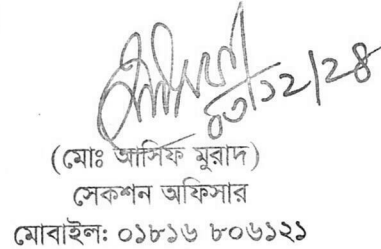 ০৩/১২/২৪
(মোঃ আসিফ মুরাদ)
সেকশন অফিসার
মোবাইল: ০১৮১৬ ৮০৬১২১